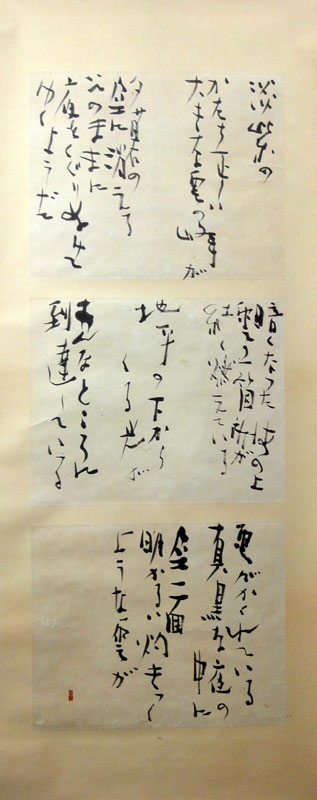 淡紫の
かたち正しい
大きな雲の峰が
夕暮の
空に消える
そのままに
をくぐりぬけて
ゆくようだ
暗くなった海の上
雲の一箇所が
紅く燃えている
地平の下から
くる光が
あんなところに
到達している
がかくれている
真黒な庭の中に
空一面
明かるい灼きつく
ような雲が